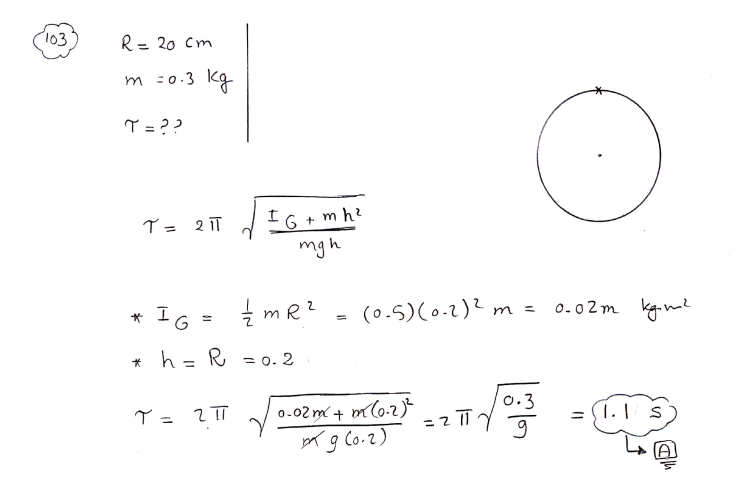 103
R = 20 cm
m = 0.3 kg
T = ??
T = 2π √( (I_G + mh²) / (mgh) )
* I_G = 1/2 mR² = (0.5)(0.2)² m = 0.02m kg.m²
* h = R = 0.2
T = 2π √( (0.02m + m(0.2)²) / (m g (0.2)) ) = 2π √( 0.3 / g ) = 1.1 s
↳ A